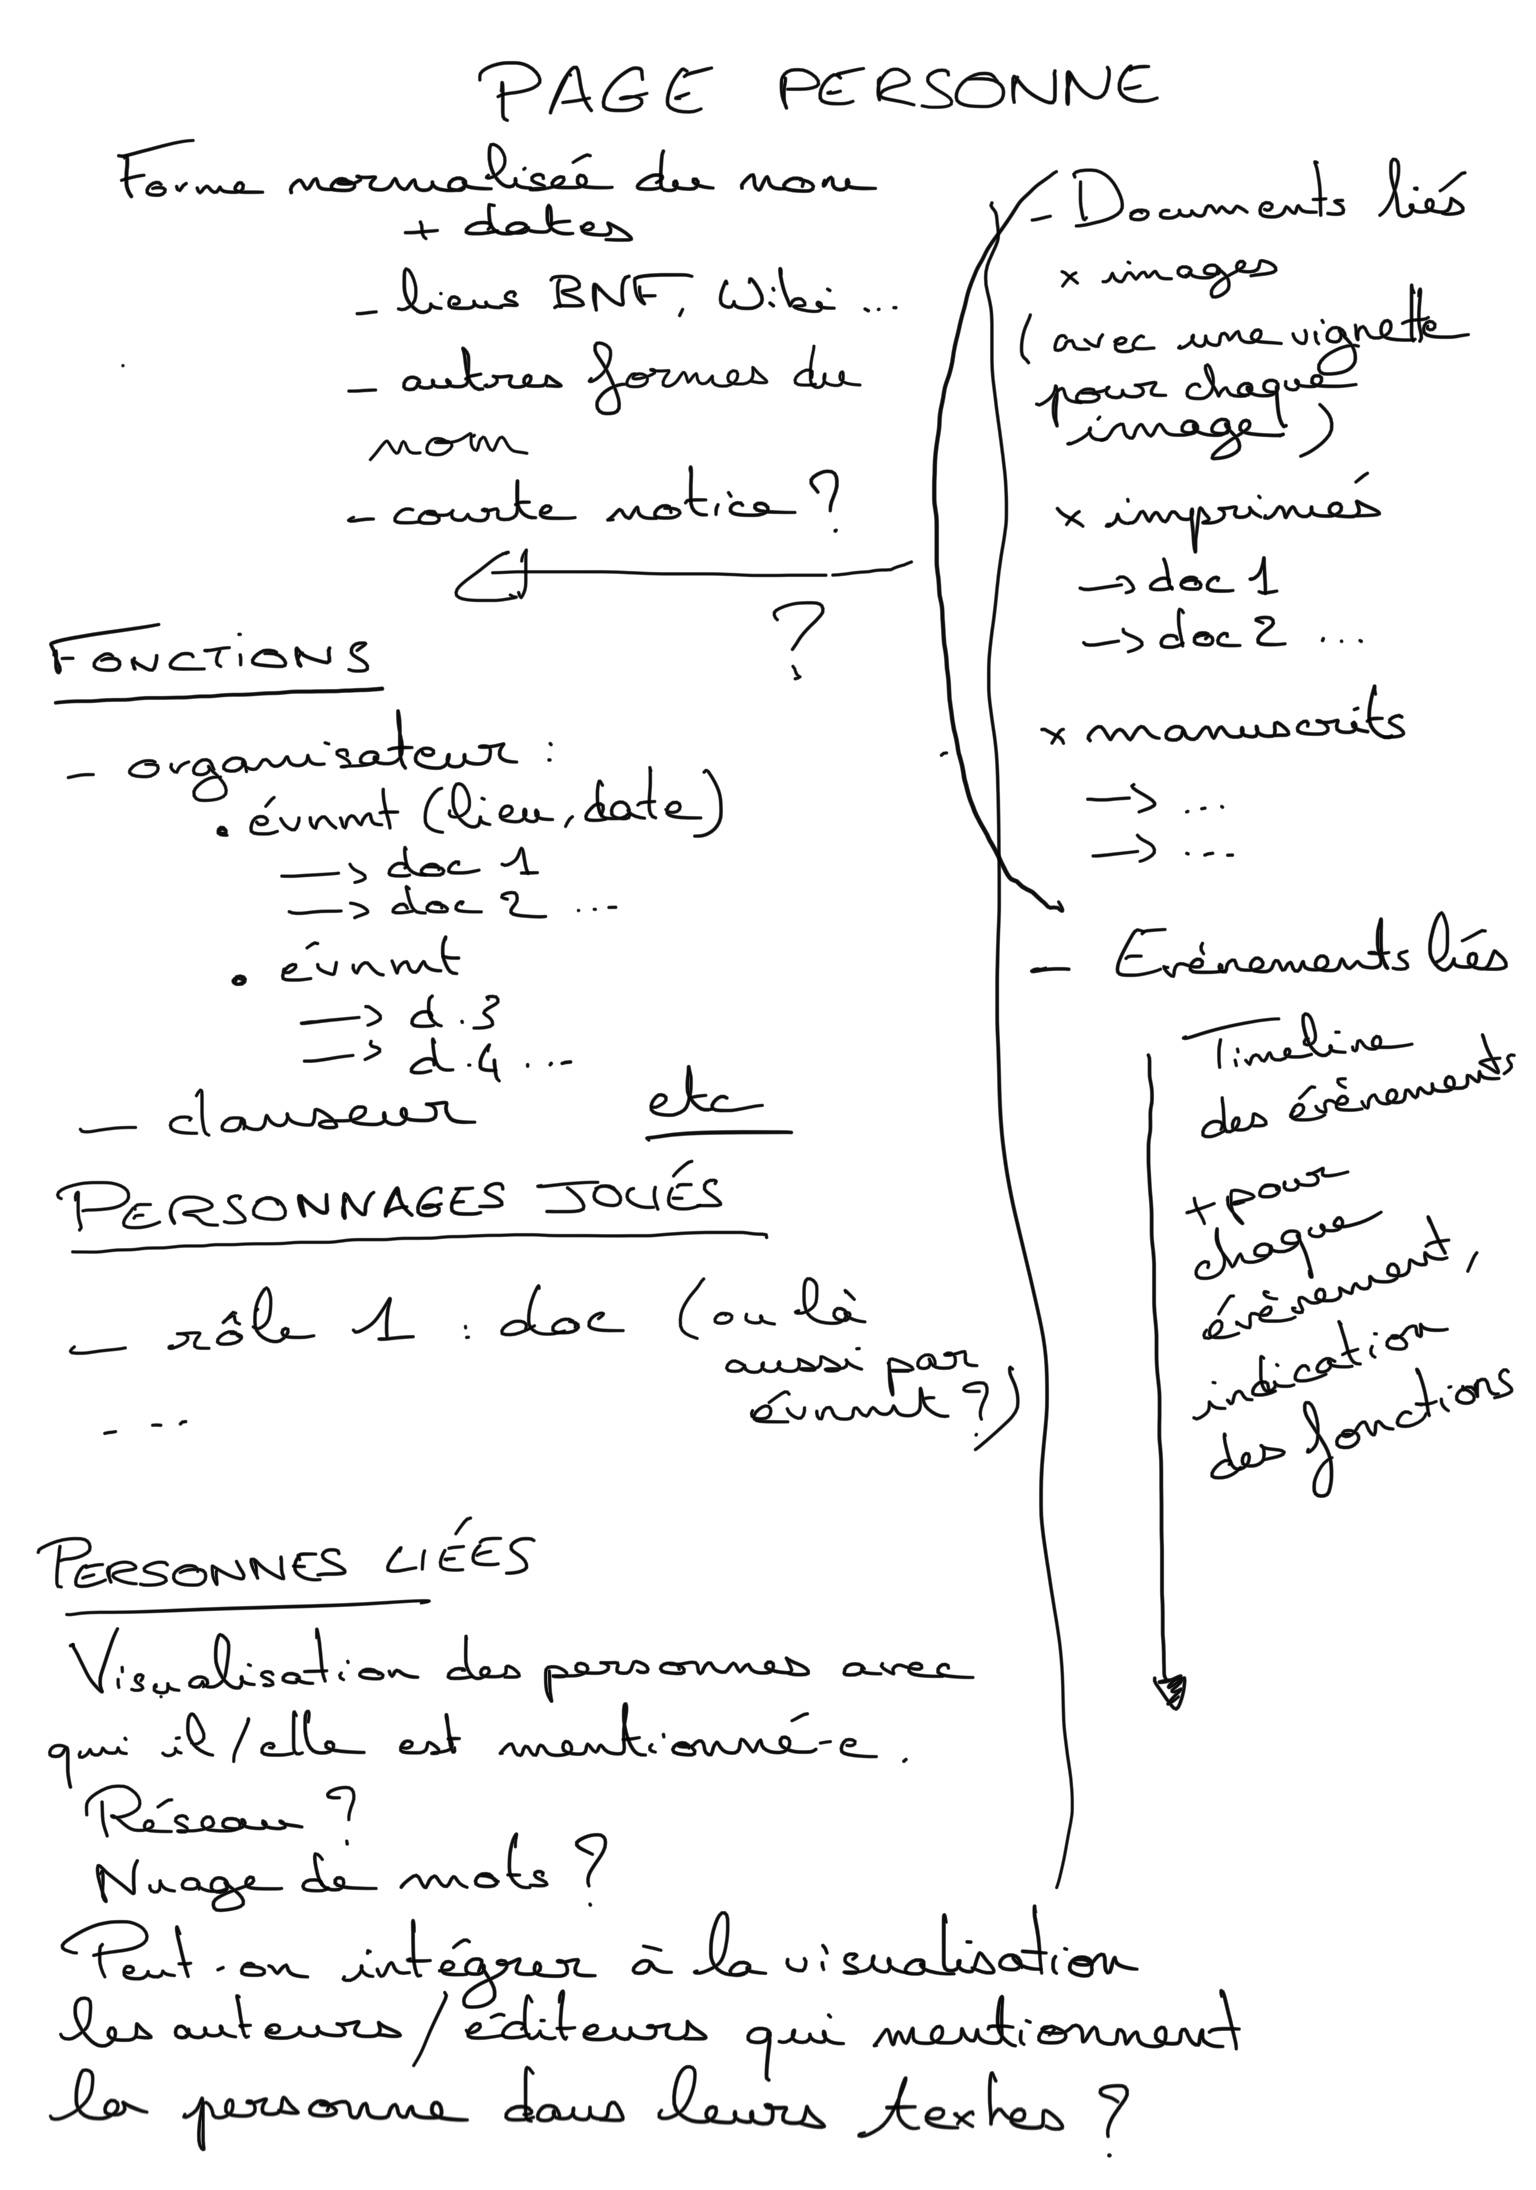 PAGE PERSONNE
Forme normalisée du nom
+ dates
- liens BNF, Wiki ...
- autres formes du
nom
- courte notice ?
?
FONCTIONS
- organisateur :
. évnmt (lieu, date)
→ doc 1
→ doc 2 ...
. évnmt
→ d.3
→ d.4 ...
- danseur etc
PERSONNAGES JOUÉS
- rôle 1 : doc (ou là
aussi par
évnmt ?)
- ...
PERSONNES LIÉES
Visualisation des personnes avec
qui il/elle est mentionné-e.
Réseau ?
Nuage de mots ?
Peut-on intégrer à la visualisation
les auteurs/éditeurs qui mentionnent
la personne dans leurs textes ?
- Documents liés
x images
(avec une vignette
pour chaque
image)
x imprimés
→ doc 1
→ doc 2 ...
x manuscrits
→ ...
→ ...
- Evénements liés
Timeline
des événements
+ pour
chaque
événement,
indication
des fonctions